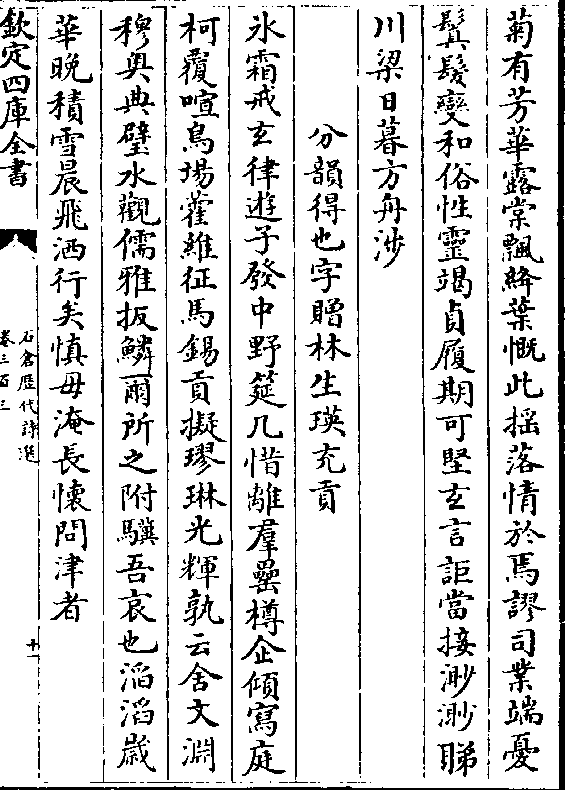 菊有芳華露棠飄絳葉慨此揺落情於焉謬司業端憂
鬂髮變和俗性靈竭貞履期可堅玄言詎當接渺渺睇
川梁日暮方舟涉
分韻得也字贈林生瑛充貢
氷霜戒玄律逰子發中野筵几惜離羣罍樽企傾寫庭
柯覆喧鳥塲藿維征馬錫貢擬璆琳光輝孰云舍文淵
穆奥典璧水觀儒雅扳鱗爾所之附驥吾哀也滔滔歳
華晚積雪晨飛洒行矣慎毋淹長懷問津者
欽定四庫全書
石倉歴代詩選
卷三百三
十一